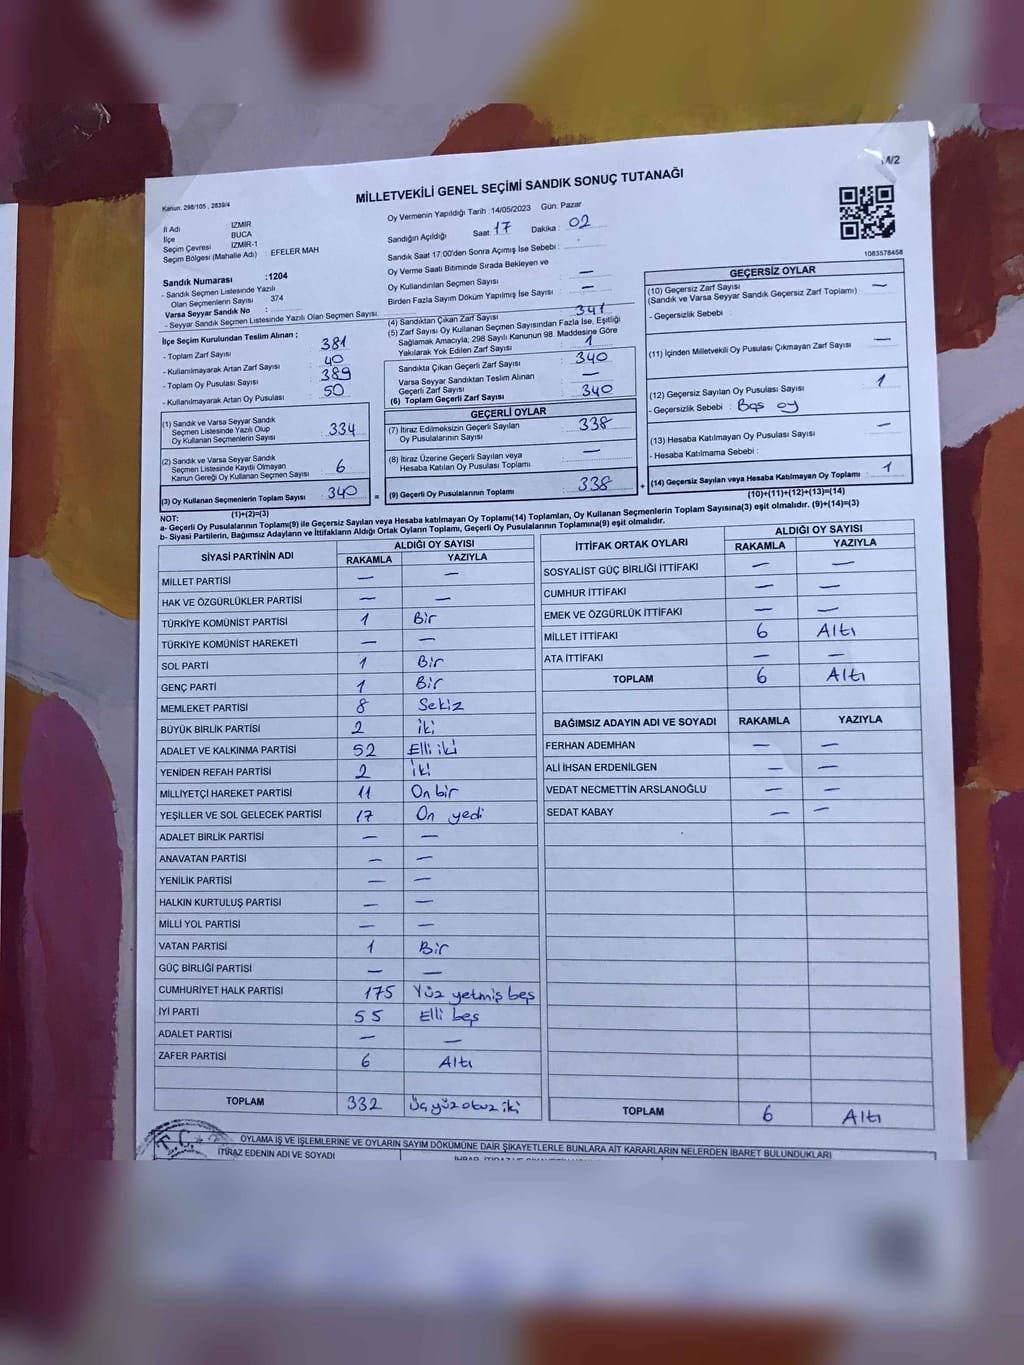 M/2
MİLLETVEKİLİ GENEL SEÇİMİ SANDIK SONUÇ TUTANAĞI
Kanun: 298/105 , 2839/4
İl Adı İZMİR
İlçe BUCA
Seçim Çevresi İZMİR-1
Seçim Bölgesi (Mahalle Adı) EFELER MAH
Sandık Numarası :1204
- Sandık Seçmen Listesinde Yazılı
Olan Seçmenlerin Sayısı 374
Varsa Seyyar Sandık No :
- Seyyar Sandık Seçmen Listesinde Yazılı Olan Seçmen Sayısı:
Oy Vermenin Yapıldığı Tarih :14/05/2023 Gün: Pazar
Sandığın Açıldığı Saat 17 Dakika : 02
Sandık Saat 17:00'den Sonra Açımış İse Sebebi :
Oy Verme Saati Bitiminde Sırada Bekleyen ve
Oy Kullandırılan Seçmen Sayısı —
Birden Fazla Sayım Döküm Yapılmış İse Sayısı : —
1083578458
İlçe Seçim Kurulundan Teslim Alınan ;
- Toplam Zarf Sayısı 381
- Kullanılmayarak Artan Zarf Sayısı : 40
- Toplam Oy Pusulası Sayısı 389
- Kullanılmayarak Artan Oy Pusulası 50
(1) Sandık ve Varsa Seyyar Sandık
Seçmen Listesinde Yazılı Olup
Oy Kullanan Seçmenlerin Sayısı 334
(2) Sandık ve Varsa Seyyar Sandık
Seçmen Listesinde Kayıtlı Olmayan
Kanun Gereği Oy Kullanan Seçmen Sayısı 6
(3) Oy Kullanan Seçmenlerin Toplam Sayısı : 340
(1)+(2)=(3)
(4) Sandıktan Çıkan Zarf Sayısı 341
(5) Zarf Sayısı Oy Kullanan Seçmen Sayısından Fazla İse, Eşitliği
Sağlamak Amacıyla; 298 Sayılı Kanunun 98. Maddesine Göre
Yakılarak Yok Edilen Zarf Sayısı 1
Sandıkta Çıkan Geçerli Zarf Sayısı 340
Varsa Seyyar Sandıktan Teslim Alınan
Geçerli Zarf Sayısı —
(6) Toplam Geçerli Zarf Sayısı : 340
GEÇERLİ OYLAR
(7) İtiraz Edilmeksizin Geçerli Sayılan
Oy Pusulalarının Sayısı 338
(8) İtiraz Üzerine Geçerli Sayılan veya
Hesaba Katılan Oy Pusulası Toplamı —
= (9) Geçerli Oy Pusulalarının Toplamı 338
GEÇERSİZ OYLAR
(10) Geçersiz Zarf Sayısı —
(Sandık ve Varsa Seyyar Sandık Geçersiz Zarf Toplamı)
- Geçersizlik Sebebi :
(11) İçinden Milletvekili Oy Pusulası Çıkmayan Zarf Sayısı —
(12) Geçersiz Sayılan Oy Pusulası Sayısı 1
- Geçersizlik Sebebi : Boş oy
(13) Hesaba Katılmayan Oy Pusulası Sayısı —
- Hesaba Katılmama Sebebi :
+ (14) Geçersiz Sayılan veya Hesaba Katılmayan Oy Toplamı 1
(10)+(11)+(12)+(13)=(14)
NOT:
a- Geçerli Oy Pusulalarının Toplamı(9) ile Geçersiz Sayılan veya Hesaba katılmayan Oy Toplamı(14) Toplamları, Oy Kullanan Seçmenlerin Toplam Sayısına(3) eşit olmalıdır. (9)+(14)=(3)
b- Siyasi Partilerin, Bağımsız Adayların ve İttifakların Aldığı Ortak Oyların Toplamı, Geçerli Oy Pusulalarının Toplamına(9) eşit olmalıdır.
SİYASİ PARTİNİN ADI ALDIĞI OY SAYISI
RAKAMLA YAZIYLA
MİLLET PARTİSİ — —
HAK VE ÖZGÜRLÜKLER PARTİSİ — —
TÜRKİYE KOMÜNİST PARTİSİ 1 Bir
TÜRKİYE KOMÜNİST HAREKETİ — —
SOL PARTİ 1 Bir
GENÇ PARTİ 1 Bir
MEMLEKET PARTİSİ 8 Sekiz
BÜYÜK BİRLİK PARTİSİ 2 iki
ADALET VE KALKINMA PARTİSİ 52 Elli iki
YENİDEN REFAH PARTİSİ 2 iki
MİLLİYETÇİ HAREKET PARTİSİ 11 On bir
YEŞİLLER VE SOL GELECEK PARTİSİ 17 On yedi
ADALET BİRLİK PARTİSİ — —
ANAVATAN PARTİSİ — —
YENİLİK PARTİSİ — —
HALKIN KURTULUŞ PARTİSİ — —
MİLLİ YOL PARTİSİ — —
VATAN PARTİSİ 1 Bir
GÜÇ BİRLİĞİ PARTİSİ — —
CUMHURİYET HALK PARTİSİ 175 Yüz yetmiş beş
İYİ PARTİ 55 Elli beş
ADALET PARTİSİ — —
ZAFER PARTİSİ 6 Altı
TOPLAM 332 Üç yüz otuz iki
İTTİFAK ORTAK OYLARI ALDIĞI OY SAYISI
RAKAMLA YAZIYLA
SOSYALİST GÜÇ BİRLİĞİ İTTİFAKI — —
CUMHUR İTTİFAKI — —
EMEK VE ÖZGÜRLÜK İTTİFAKI — —
MİLLET İTTİFAKI 6 Altı
ATA İTTİFAKI — —
TOPLAM 6 Altı
BAĞIMSIZ ADAYIN ADI VE SOYADI RAKAMLA YAZIYLA
FERHAN ADEMHAN — —
ALİ İHSAN ERDENİLGEN — —
VEDAT NECMETTİN ARSLANOĞLU — —
SEDAT KABAY — —
TOPLAM 6 Altı
T.C.
OYLAMA İŞ VE İŞLEMLERİNE VE OYLARIN SAYIM DÖKÜMÜNE DAİR ŞİKAYETLERLE BUNLARA AİT KARARLARIN NELERDEN İBARET BULUNDUKLARI
İTİRAZ EDENİN ADI VE SOYADI